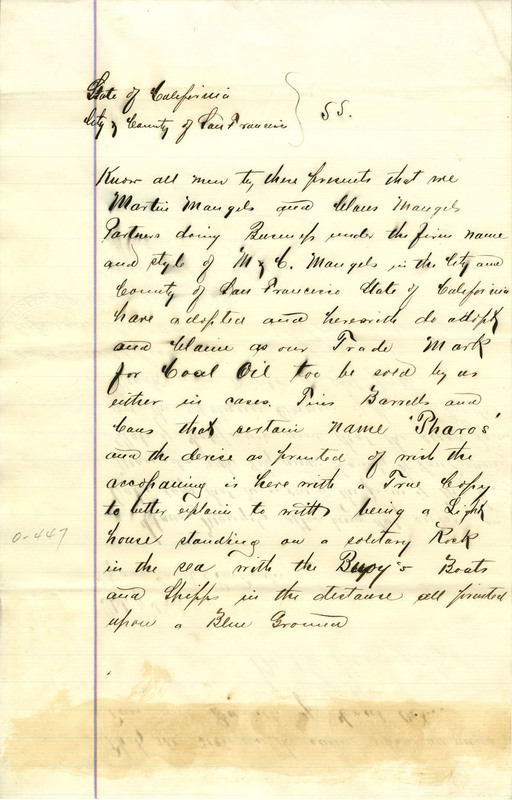 State of California
City & County of San Francisco } SS.
Know all men by these presents that we
Martin Mangels and Claus Mangels
Partners doing Business under the firm name
and style of M & C. Mangels in the City and
County of San Francisco State of California
have adopted and herewith do adopt
and Claim as our Trade Mark
for Coal Oil too be sold by us
either in cases. Tins Barrells and
Cans that certain name "Pharos"
and the device as printed of wich the
accopaning is here with a True Copy
to better explain to with being a Light
0-447
house standing on a solitary Rock
in the sea with the Buoy's Boats
and Shipps in the distance all printed
upon a Blue Ground